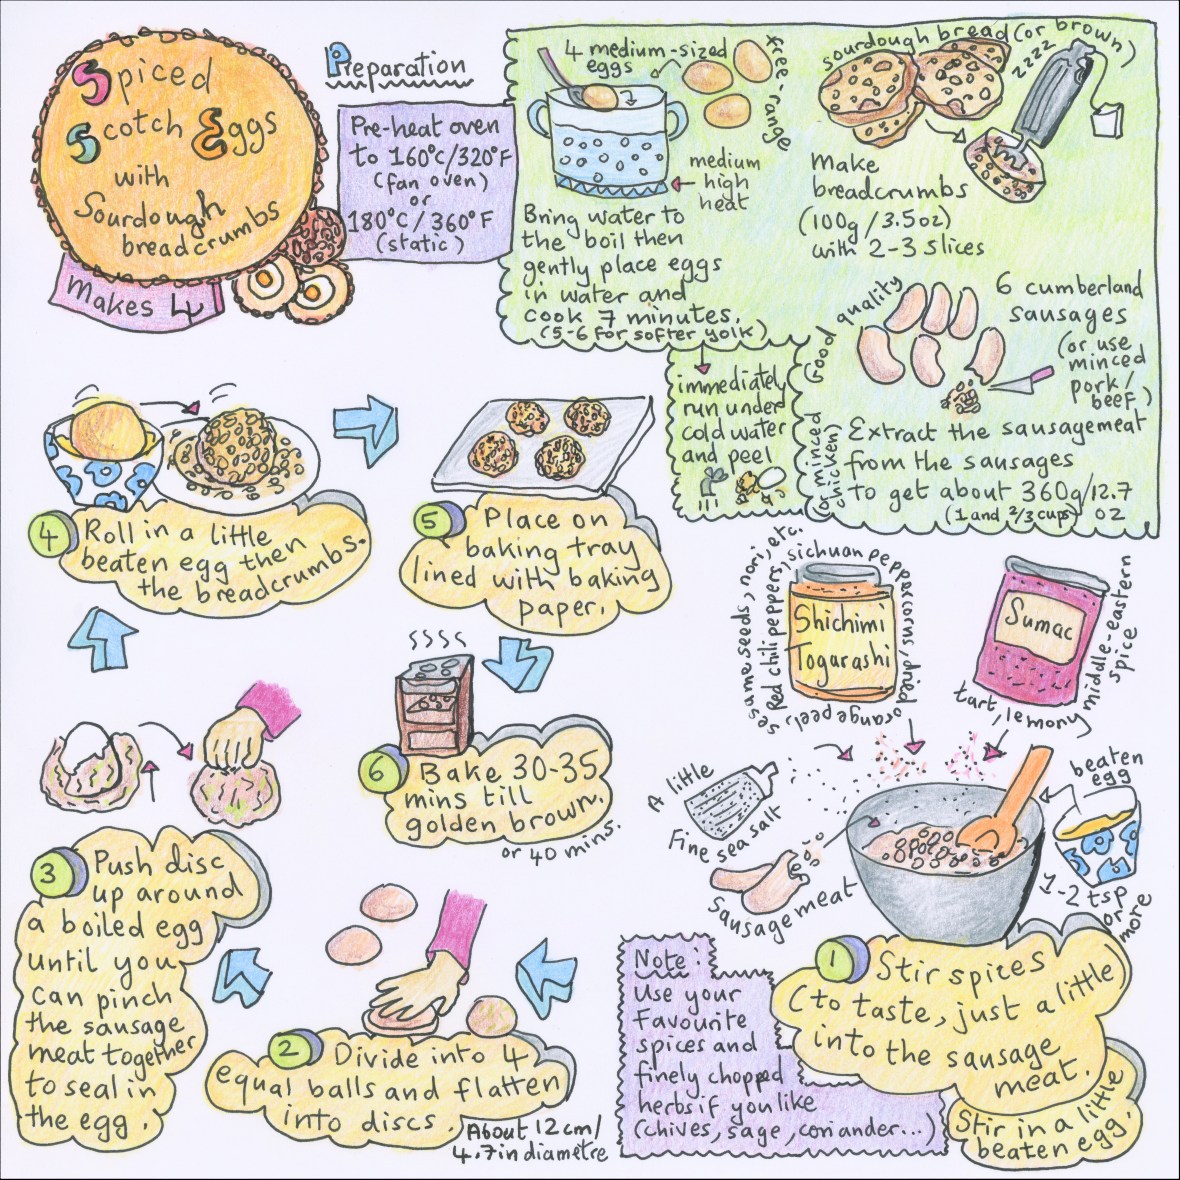 Spiced
Scotch Eggs
with
Sourdough
breadcrumbs
Makes 4
Preparation
Pre-heat oven
to 160°C/320°F
(fan oven)
or
180°C/360°F
(static)
4 medium-sized
eggs
free-range
medium
high
heat
Bring water to
the boil then
gently place eggs
in water and
cook 7 minutes.
(5-6 for softer yolk)
immediately
run under
cold water
and peel
sourdough bread (or brown)
zzzz
Make
breadcrumbs
(100g/3.5oz)
with 2-3 slices
Good quality
6 cumberland
sausages
(or use
minced
pork/
beef)
(or minced
chicken)
Extract the sausagemeat
from the sausages
to get about 360g/12.7
(1 and 2/3 cups) oz
sesame seeds, nori, etc.
Red chili peppers, sichuan peppercorns, dried
orange peel,
Shichimi
Togarashi
Sumac
middle-eastern
spice
tart, lemony
A little
Fine sea salt
Sausage meat
beaten
egg
1-2 tsp
or
more
1 Stir spices
(to taste, just a little)
into the sausage
meat.
Stir in a little
beaten egg.
Note:
Use your
favourite
spices and
finely chopped
herbs if you like
(chives, sage, coriander...)
2 Divide into 4
equal balls and flatten
into discs.
About 12cm/
4.7in diametre
3 Push disc
up around
a boiled egg
until you
can pinch
the sausage
meat together
to seal in
the egg.
4 Roll in a little
beaten egg then
the breadcrumbs.
5 Place on
baking tray
lined with baking
paper.
6 Bake 30-35
mins till
golden brown.
or 40 mins.